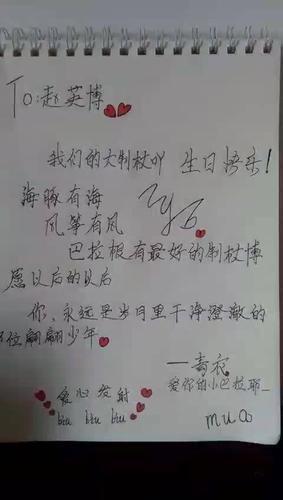 To:赵英博
我们的大制杖吖 生日快乐!
海豚有海
风筝有风
巴拉根有最好的制杖博
愿以后的以后
你,永远是岁月里干净澄澈的
那位翩翩少年。
爱你的小巴拉耶_
爱心发射
biu biu biu
mua